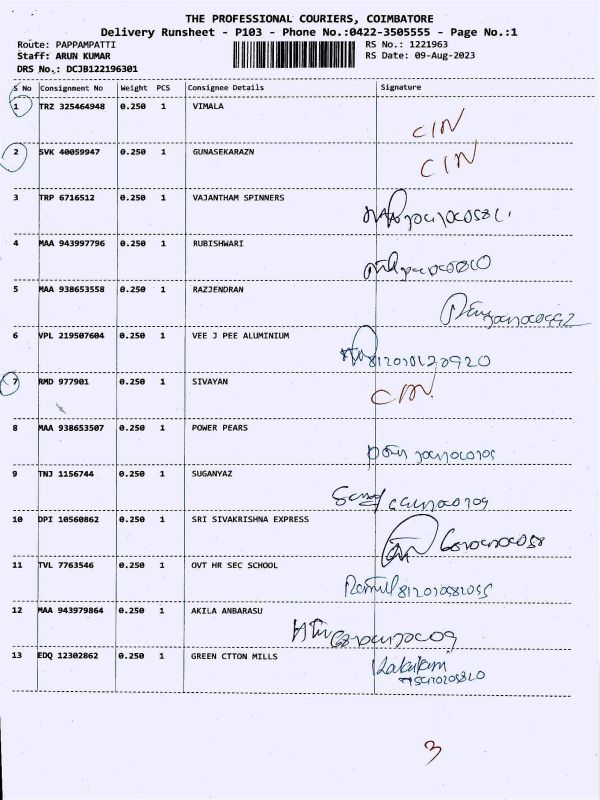 THE PROFESSIONAL COURIERS, COIMBATORE
Delivery Runsheet - P103 - Phone No.:0422-3505555 - Page No.:1
Route: PAPPAMPATTI RS No.: 1221963
Staff: ARUN KUMAR RS Date: 09-Aug-2023
DRS No.: DCJB122196301
S No Consignment No Weight PCS Consignee Details Signature
1 TRZ 325464948 0.250 1 VIMALA CIN
2 SVK 40059947 0.250 1 GUNASEKARAZN CIN
3 TRP 6716512 0.250 1 VAJANTHAM SPINNERS
4 MAA 943997796 0.250 1 RUBISHWARI
5 MAA 938653558 0.250 1 RAZJENDRAN
6 VPL 219507604 0.250 1 VEE J PEE ALUMINIUM
7 RMD 977901 0.250 1 SIVAYAN CIN
8 MAA 938653507 0.250 1 POWER PEARS
9 TNJ 1156744 0.250 1 SUGANYAZ
10 DPI 10560862 0.250 1 SRI SIVAKRISHNA EXPRESS
11 TVL 7763546 0.250 1 OVT HR SEC SCHOOL
12 MAA 943979864 0.250 1 AKILA ANBARASU
13 EDQ 12302862 0.250 1 GREEN CTTON MILLS
3